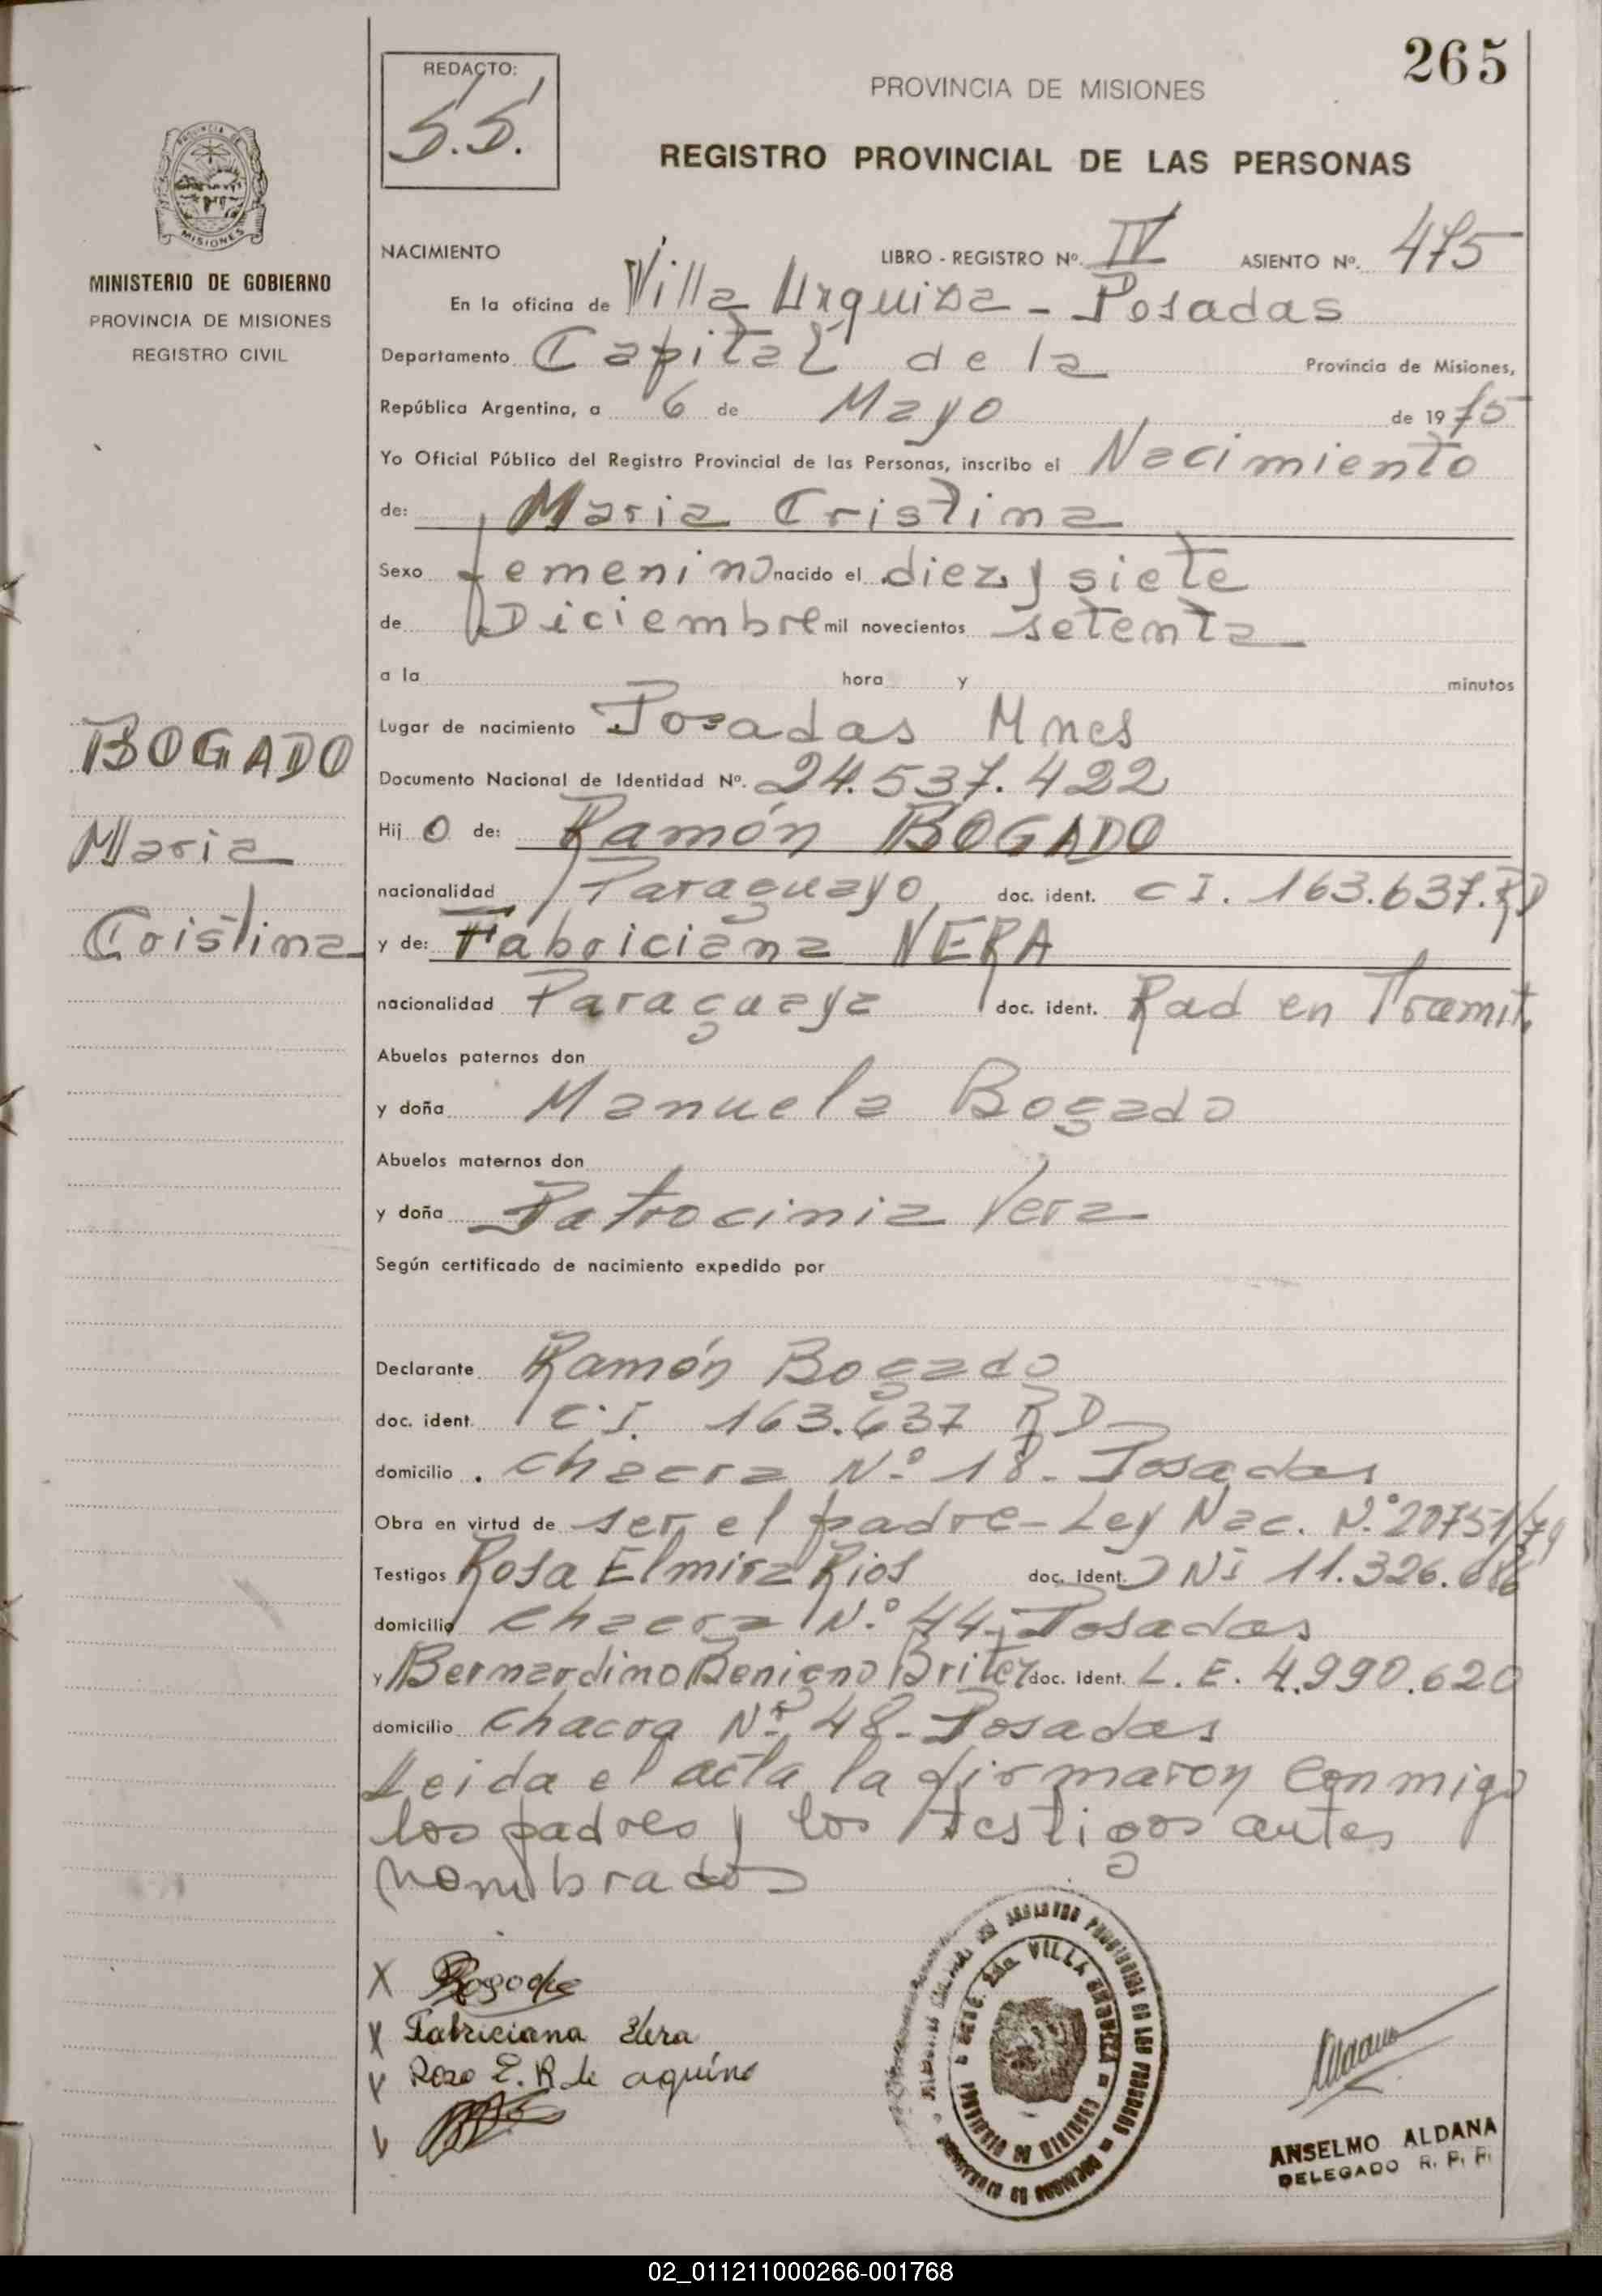 265
REDACTO:
S.S.
PROVINCIA DE MISIONES
REGISTRO PROVINCIAL DE LAS PERSONAS
MISIONES
MINISTERIO DE GOBIERNO
PROVINCIA DE MISIONES
REGISTRO CIVIL
NACIMIENTO LIBRO - REGISTRO Nº. IV ASIENTO Nº. 475
En la oficina de Villa Urquiza - Posadas
Departamento Capital de la Provincia de Misiones,
República Argentina, a 6 de Mayo de 1975
Yo Oficial Público del Registro Provincial de las Personas, inscribo el Nacimiento
de: Maria Cristina
Sexo femenino nacido el diez y siete
de Diciembre mil novecientos setenta
a la hora y minutos
BOGADO
Maria
Cristina
Lugar de nacimiento Posadas Mnes
Documento Nacional de Identidad Nº. 24.537.422
Hij o de: Ramón BOGADO
nacionalidad Paraguayo doc. ident. C I. 163.637. RD
y de: Fabriciana VERA
nacionalidad Paraguaya doc. ident. Rad en Tramit.
Abuelos paternos don
y doña Manuela Bogado
Abuelos maternos don
y doña Patrocinia Vera
Según certificado de nacimiento expedido por
Declarante Ramón Bogado
doc. ident. C.I. 163.637 RD
domicilio . chacra N.º 18 - Posadas
Obra en virtud de ser el padre - Ley Nac. N.º 20751/74
Testigos Rosa Elmira Rios doc. Ident. D Ni 11.326.086
domicilio chacra N.º 44 - Posadas
y Bernardino Benigno Britez doc. Ident. L. E. 4.990.620
domicilio chacra Nº 48 - Posadas
Leida el acta la firmaron conmigo
los padres y los testigos antes
nombrados
X Bogado
X Fabriciana Vera
Rosa E. R de aquino
VILLA URQUIZA
ANSELMO ALDANA
DELEGADO R. P. P.
02_011211000266-001768